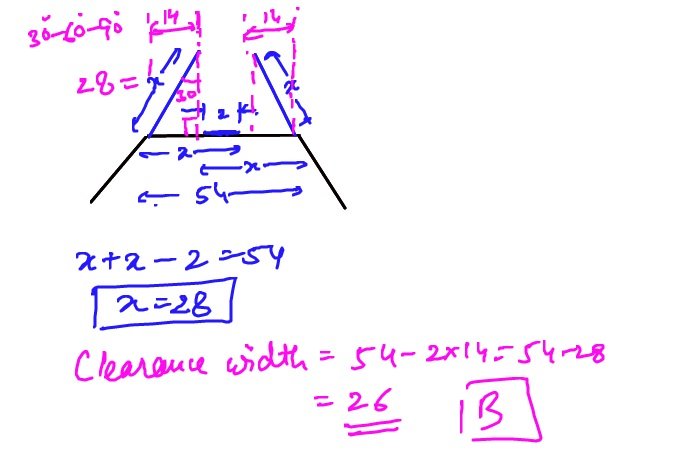 30-60-90
14
14
28 = x
x
30
2
x
x
54
x + x - 2 = 54
x = 28
Clearance width = 54 - 2x14 = 54 - 28
= 26
B